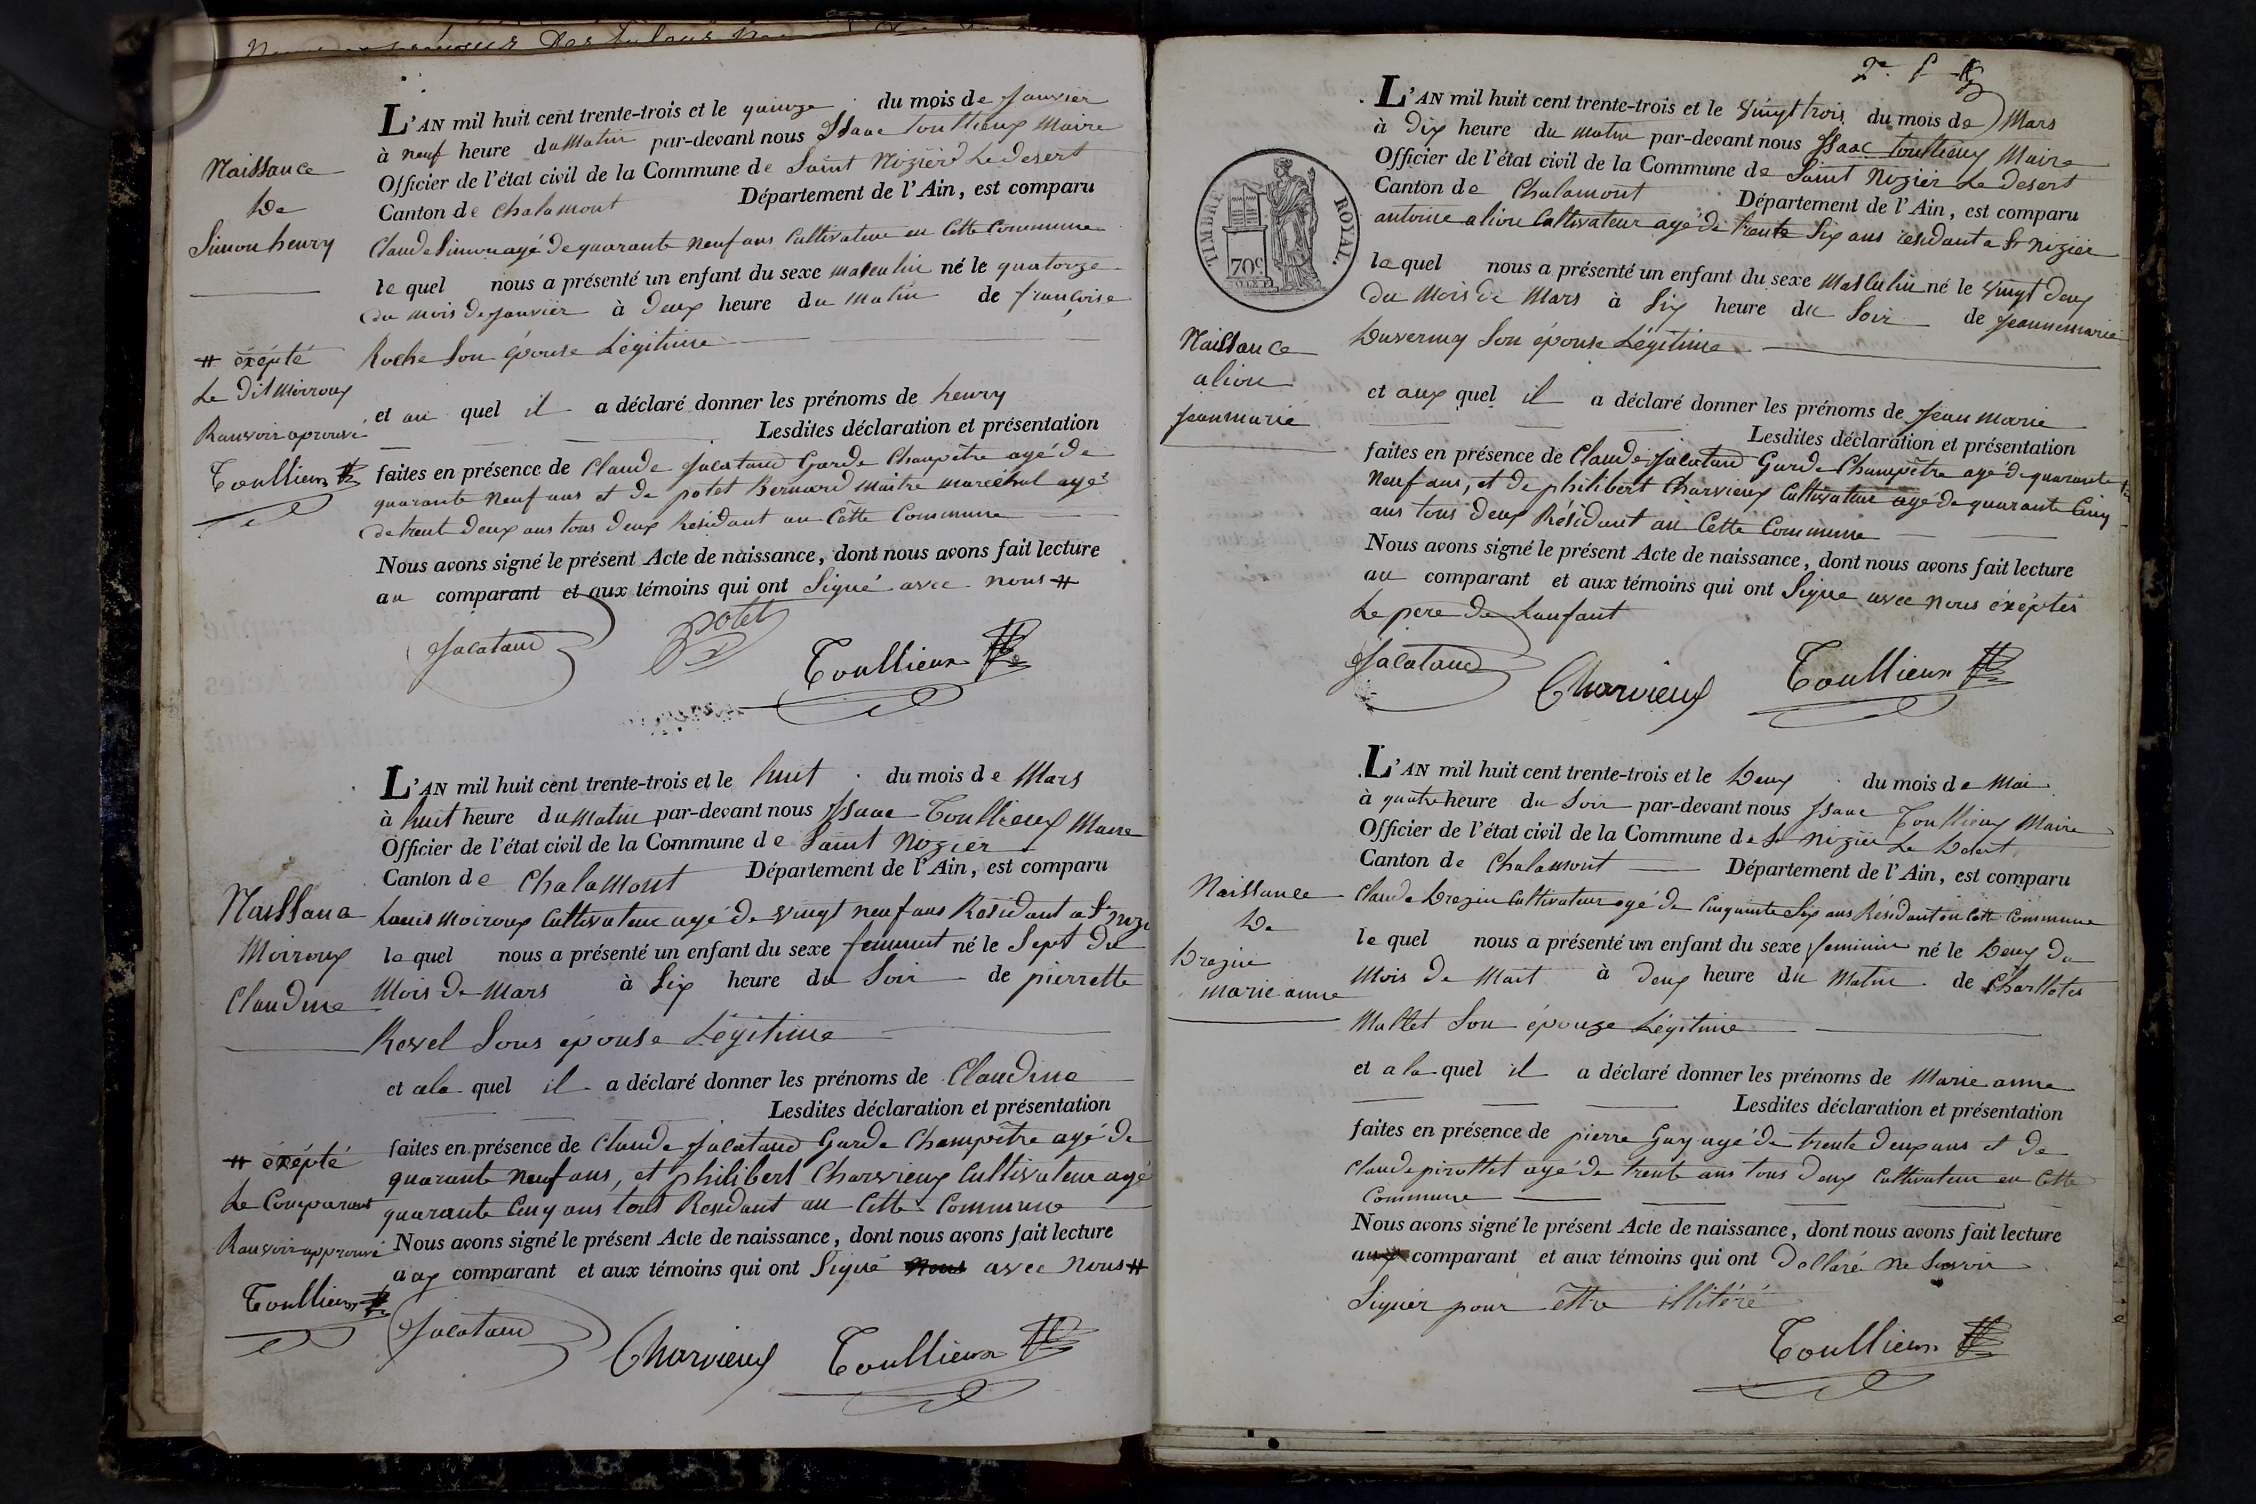 L'AN mil huit cent trente-trois et le quinze du mois de Janvier
à neuf heure du Matin par-devant nous Isaac Toullieux Maire
Officier de l'état civil de la Commune de Saint Nizier Le desert
Canton de Chalamont Département de l'Ain, est comparu
Claude Simon agé de quarante neuf ans Cultivateur en Cette Commune
le quel nous a présenté un enfant du sexe masculin né le quatorze
du mois de Janvier à deux heure du matin de françoise
Roche Son épouse Légitime
et au quel il a déclaré donner les prénoms de henry
Lesdites déclaration et présentation
faites en présence de Claude Jacataud Garde Champêtre agé de
quarante neuf ans et de potet Bernard maitre marechal agé
de trent deux ans tous deux Residant en Cette Commune
Nous avons signé le présent Acte de naissance, dont nous avons fait lecture
au comparant et aux témoins qui ont Signé avec nous #
Jacataud potet Toullieux
Naissance
De
Simon henry
# éxépté
Le dit Moiroux
Ranvoir aprouvé
Toullieux
L'AN mil huit cent trente-trois et le huit du mois de Mars
à huit heure du Matin par-devant nous Isaac Toullieux Maire
Officier de l'état civil de la Commune de Saint Nizier
Canton de Chalamont Département de l'Ain, est comparu
Louis Moiroux Cultivateur agé de vingt neuf ans Residant a St Nizi
le quel nous a présenté un enfant du sexe né le Sept du
Mois de Mars à Six heure du Soir de pierrette
Revel Sous épouse Légitime
et a la quel il a déclaré donner les prénoms de Claudine
Lesdites déclaration et présentation
faites en présence de Claude Jacataud Garde Champêtre agé de
quarante neuf ans, et philibert Charvieux Cultivateur agé
quarante Cinq ans tous Residant en Cette Commune
Nous avons signé le présent Acte de naissance, dont nous avons fait lecture
aux comparant et aux témoins qui ont Signé nous avec nous #
Jacataud Charvieux Toullieux
Naissance
Moiroux
Claudine
# éxépté
Le Comparant
Ranvoir approuvé
Toullieux
2e f
L'AN mil huit cent trente-trois et le vingt trois du mois de Mars
à Dix heure du matin par-devant nous Isaac Toullieux Maire
Officier de l'état civil de la Commune de Saint Nizier Le desert
Canton de Chalamont Département de l'Ain, est comparu
antoine alion Cultivateur agé de trente Six ans résidant a St Nizier
le quel nous a présenté un enfant du sexe Masculin né le vingt deux
du Mois de Mars à Six heure du Soir de Jeanne marie
Duvernay Son épouse Légitime
et aux quel il a déclaré donner les prénoms de Jean Marie
Lesdites déclaration et présentation
faites en présence de Claude Jacataud Garde Champêtre agé de quarante
neuf ans, et de philibert Charvieux Cultivateur agé de quarante Cinq
ans tous deux Résidant en Cette Commune
Nous avons signé le présent Acte de naissance, dont nous avons fait lecture
au comparant et aux témoins qui ont Signé avec nous éxéptés
Le pere de Lanfant
Jacataud Charvieux Toullieux
TIMBRE ROYAL.
70c
Naissance
alion
Jean marie
L'AN mil huit cent trente-trois et le Deux du mois de Mai
à quatre heure du Soir par-devant nous Isaac Toullieux Maire
Officier de l'état civil de la Commune de St Nizier Le Desert
Canton de Chalamont Département de l'Ain, est comparu
Claude Drezin Cultivateur agé de Cinquante Six ans Résidant en Cette Commune
le quel nous a présenté un enfant du sexe feminin né le Deux du
Mois de Mait à Deux heure du Matin de Charllotes
Mallet Son épouze Légitime
et a la quel il a déclaré donner les prénoms de Marie anne
Lesdites déclaration et présentation
faites en présence de pierre Guy agé de trente deux ans et de
Claude pirottet agé de trente ans tous deux Cultivateur en Cette
Commune
Nous avons signé le présent Acte de naissance, dont nous avons fait lecture
comparant et aux témoins qui ont Decllaré ne Savoir
Signér pour être illitéré
Toullieux
Naissance
De
Drezin
marie anne